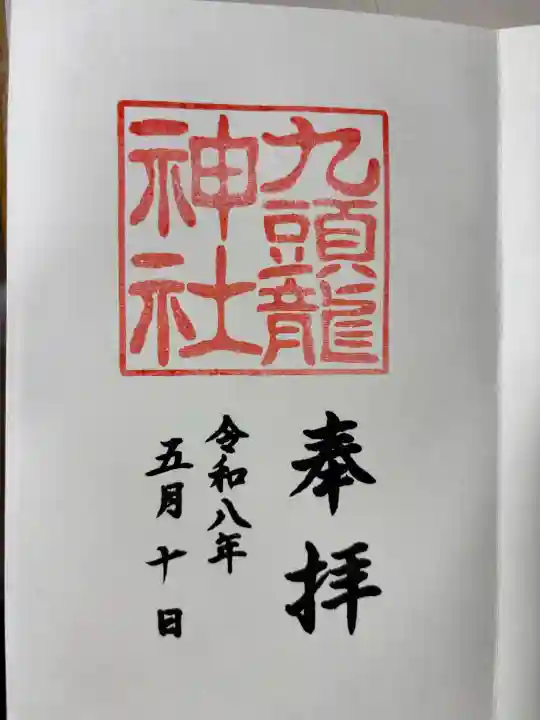 九頭龍
神社
奉拝
令和八年
五月十日